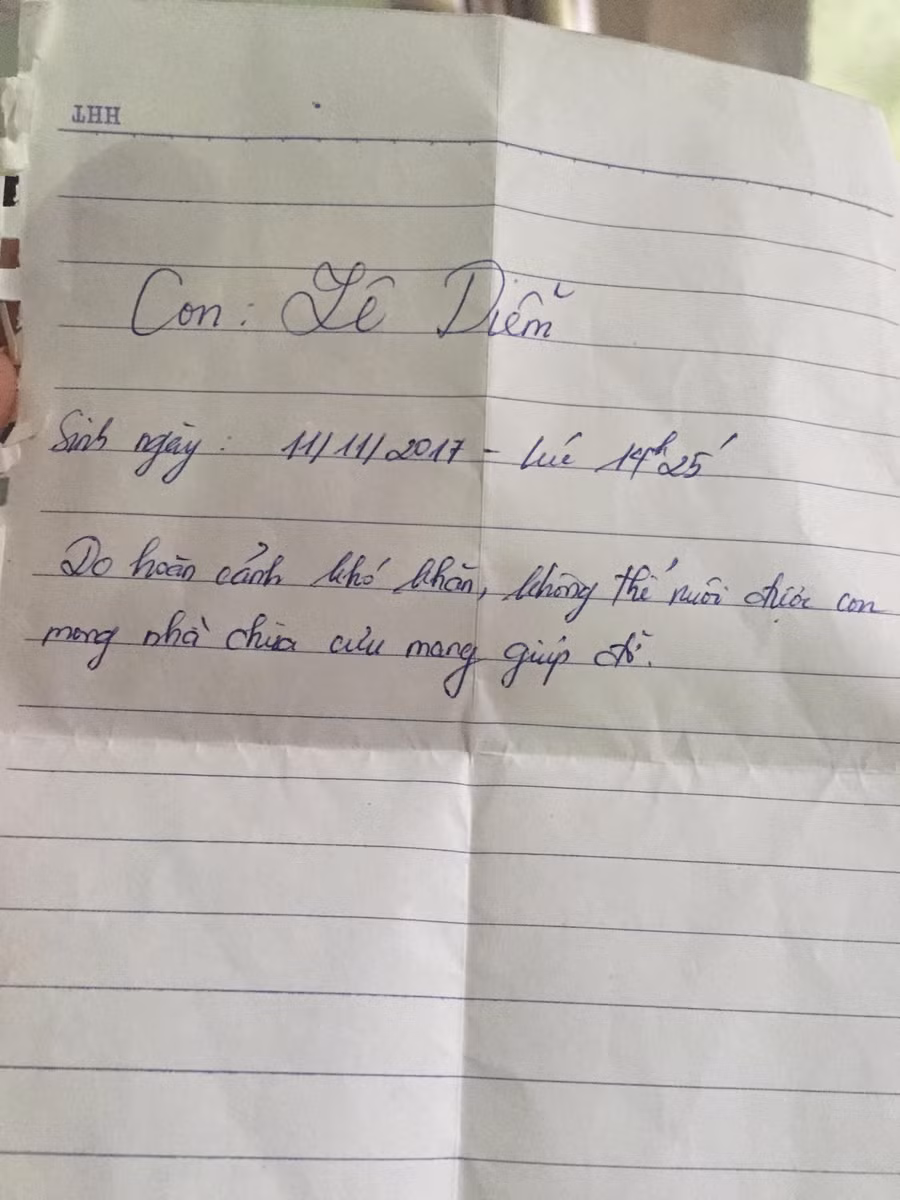 HHT
Con: Lê Diễm
Sinh ngày: 11/11/2017 - lúc 14h25'
Do hoàn cảnh khó khăn, không thể nuôi được con
mong nhà chùa cưu mang giúp đỡ.